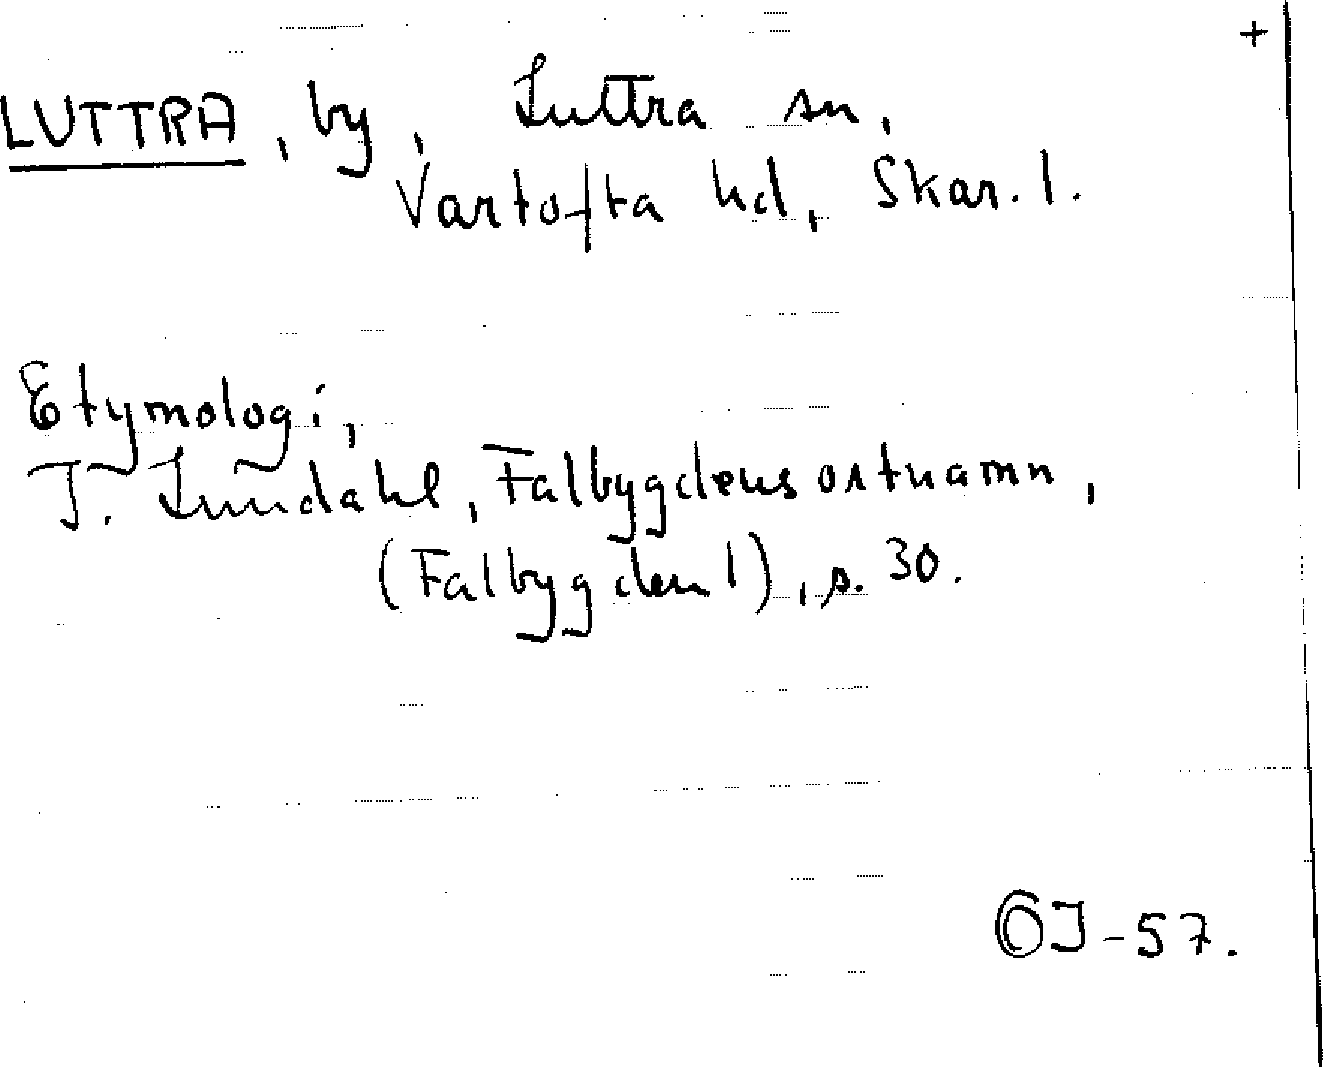 +
LUTTRA, by, Luttra sn,
Vartofta hd, Skar. l.
Etymologi,
I. Lundahl, Falbygdens ortnamn,
(Falbygden 1), s. 30.
OJ-57.